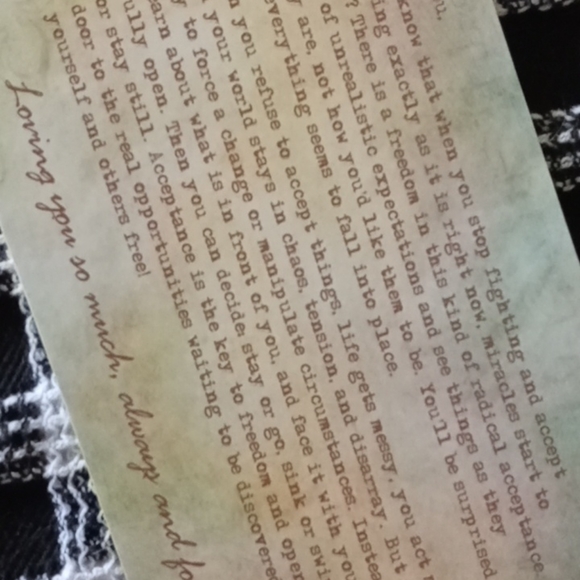 u,
know that when you stop fighting and accept
ing exactly as it is right now, miracles start to
? There is a freedom in this kind of radical acceptance.
of unrealistic expectations and see things as they
y are, not how you'd like them to be. You'll be surprised
everything seems to fall into place.
n you refuse to accept things, life gets messy, you act
your world stays in chaos, tension, and disarray. But
y to force a change or manipulate circumstances. Instea
arn about what is in front of you, and face it with you
ully open. Then you can decide: stay or go, sink or swi
or stay still. Acceptance is the key to freedom and open
door to the real opportunities waiting to be discovered
yourself and others free!
Loving you so much, always and fo